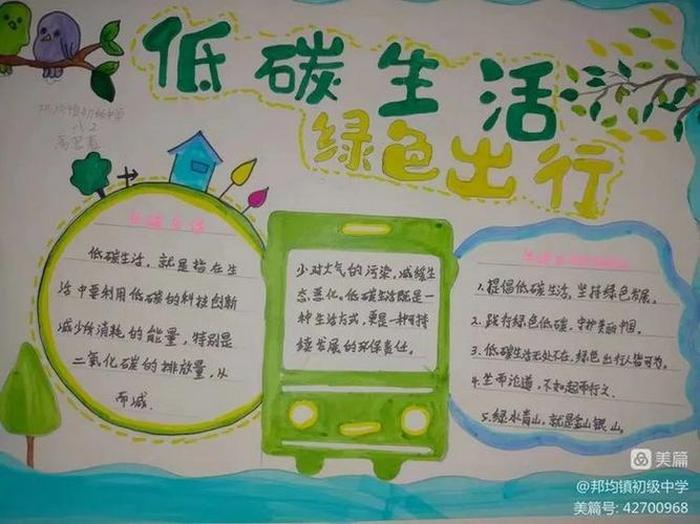 低碳生活
绿色出行
八.2
低碳生活
低碳生活，就是指在生
活中要利用低碳的科技创新
减少所消耗的能量，特别是
二氧化碳的排放量，从
而减
少对大气的污染，减缓生
态恶化。低碳生活既是一
种生活方式，更是一种可持
续发展的环保责任。
1.提倡低碳生活，坚持绿色发展。
2.践行绿色低碳，守护美丽中国。
3.低碳生活无处不在，绿色出行人皆可为。
4.坐而论道，不如起而行之.
5.绿水青山，就是金山银山。
美篇
@邦均镇初级中学
美篇号: 42700968